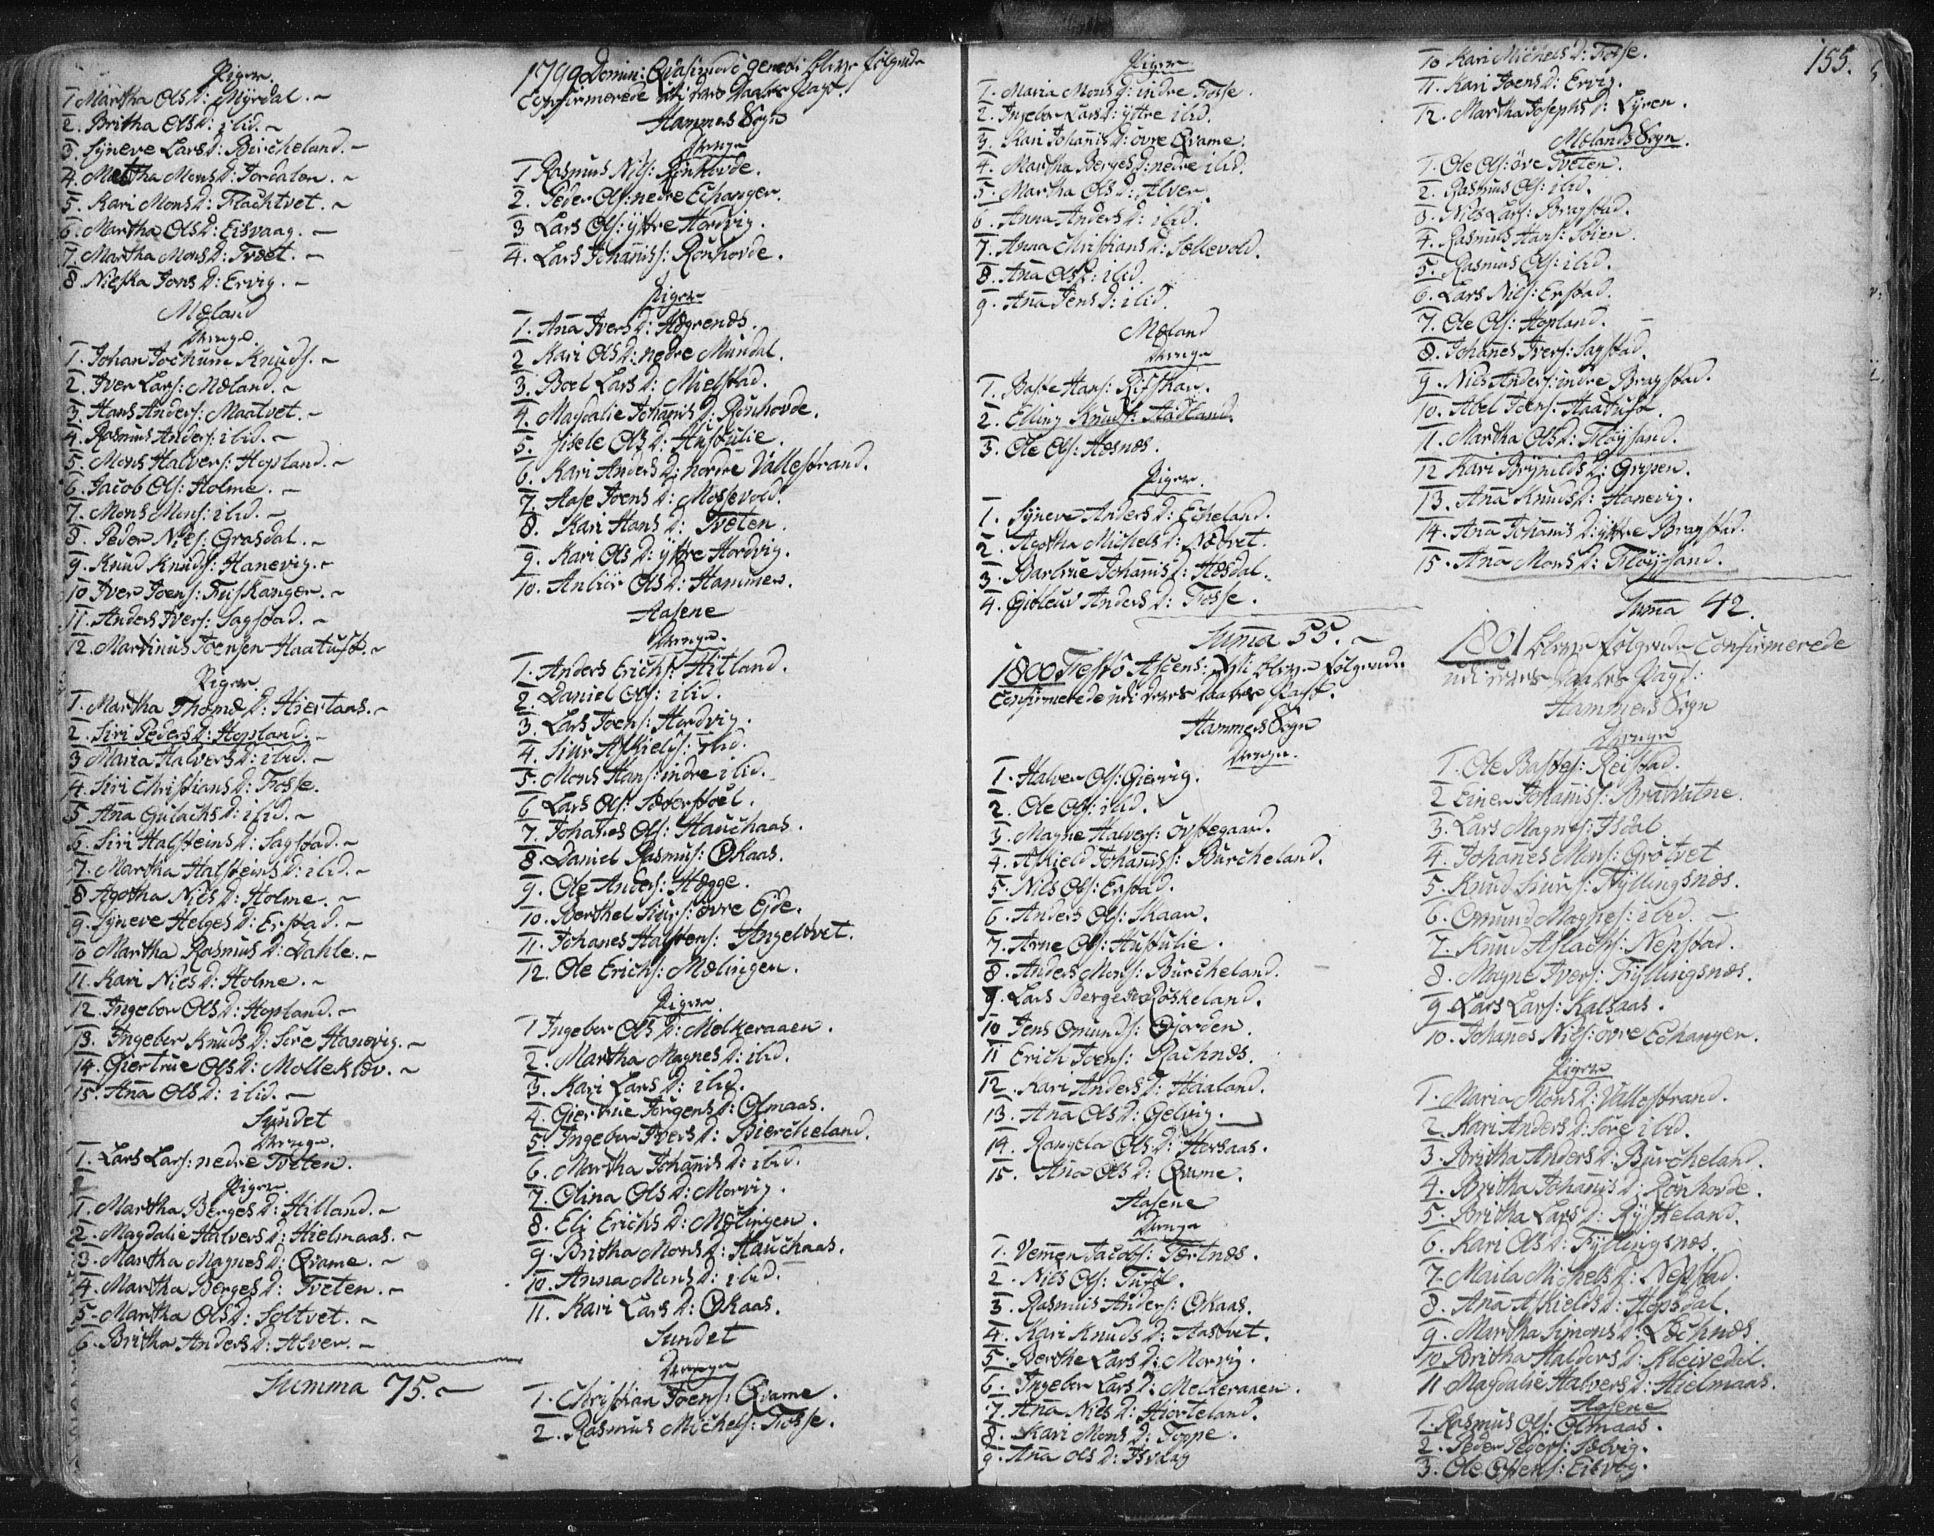 Piger
1 Martha OlsD: Myrdal. ~
2. Britha OlsD: ilid. ~
3. Syneve LarsD: Bircheland. ~
4. Martha MonsD: Jordalen. ~
5. Kari MonsD: Flachtvet. ~
6. Martha OlsD: Eisvaag. ~
7. Martha MonsD: Tvæt. ~
8. Nielka JonsD: Ervig. ~
Mæland
Drenge
1. Johan Jochum Knuds. ~
2. Iver Lars: Mæland. ~
3. Hans Anders: Maatvet. ~
4. Rasmus Anders: ilid. ~
5. Mons Halvers: Hopland. ~
6. Jacob Ols: Holme. ~
7. Mons Mons: ilid. ~
8. Peder Nils: Grasdal. ~
9. Knud Knuds: Hanevig. ~
10 Iver Joens: Fuskanger. ~
11. Anders Ivers: Sagstad. ~
12. Martinus Joensen Haatuft. ~
Piger
1. Martha ThomæD: Hiertaas. ~
2. Siri PedersD: Hopland. ~
3 Maria HalversD: ilid. ~
4. Siri ChristiansD: Fosse.
5 Aña GulachsD: ilid. ~
6. Siri HalsteinsD: Sagstad. ~
7. Martha HalsteinsD: ilid. ~
8 Agotha NilsD: Holme. ~
9. Syneve HelgesD: Erstad. ~
10 Martha RasmusD: Dahle. ~
11. Kari NilsD: Holme. ~
12 Ingebor OlsD: Hopland. ~
13. Ingebor KnudsD: Søre Hanevig. ~
14. Giertrue OlsD: Molleklev. ~
15. Aña OlsD: ilid. ~
Sundet
Drenge.
1. Lars Lars: nedre Tveten.
Piger
1. Martha BergesD: Hilland. ~
2. Magdalie HalversD: Hielmaas. ~
3. Martha MagnesD: Qvame. ~
4. Martha BergesD: Tveten. ~
5. Martha OlsD: Soltvet. ~
6. Britha AndersD: Alver. ~
Summa 75. ~
1799 Domin: Qvasimodo geneti bleve følgende
Confirmerede udi deres Daabs Pagt.
Hammers Sogn
Drenge
1. Rasmus Nils: Rønhovde.
2. Peder Ols: nedre Echanger.
3 Lars Ols: yttre Hordvig.
4. Lars Johañis: Rønhovde.
Piger
1. Aña IversD: Hægrenes.
2 Kari OlsD: nedre Mundal.
3. Boel LarsD: Mielstad.
4. Magdalie JohañisD: Rønhovde.
5. Sisele OlsD: Hustulie.
6. Kari AndersD: nordre Vallestrand.
7. Aase JoensD: Mossevold.
8. Kari HansD: Tveten.
9. Kari OlsD: yttre Hordvig.
10. Anbiør OlsD: Hammer.
Aasene
Drenge.
1. Anders Erichs: Hitland.
2. Daniel Ols: ilid.
3. Lars Joens: Hordvig.
4. Siur Askields: ilid.
5. Mons Hans: indre ilid.
6 Lars Ols: Sæterstøel.
7. Johañes Ols: Hauchaas.
8. Daniel Rasmus: Økaas.
9. Ole Anders: Hægge.
10. Berthel Siurs: øvre Eide.
11. Johañes Halstens: Angeltvet.
12. Ole Erichs: Mælingen.
Piger
1 Ingebor OlsD: Melkeraaen.
2. Martha MagnesD: ilid.
3. Kari LarsD: ilid.
4. Giertrue JørgensD: Olmaas.
5. Ingebor IversD: Biercheland.
6. Martha JohañisD: ilid.
7. Olina OlsD: Morvig.
8. Eli ErichsD: Mælingen.
9. Britha MonsD: Hauchaas.
10. Anna MonsD: ilid.
11. Kari LarsD: Økaas.
Sundet
Drenge
1. Christian Joens: Qvame.
2. Rasmus Michels: Fosse.
Piger
1. Maria MonsD: indre Fosse.
2. Ingebor LarsD: yttre ilid.
3. Kari JohañisD: øvre Qvame.
4. Martha BergesD: nedre ilid.
5. Martha OlsD: Alver.
6. Anna AndersD: ilid.
7. Anna ChristiansD: Sellevold.
8. Aña OlsD: ilid.
9. Aña JensD: ilid.
Mæland
Drenge
1. Baste Hans: Risskar.
2. Elling Knuds: Stadland.
3. Ole Ols: Hæsnes.
Piger.
1. Syneve AndersD: Echeland.
2. Agotha MichelsD: Nædtvet.
3. Barbrue JohañisD: Hæsdal.
4. Giøleur AndersD: Fosse.
Suma 55. ~
1800 Festo Ascens: Xsti bleve følgende
Confirmerede udi deres Daabes Pagt.
Hammers Sogn
Drenge.
1. Halver Ols: Giervig.
2. Ole Ols: ilid.
3. Magne Halvers: Øvstegaard.
4. Askield Johañis: Burcheland.
5. Nils Ols: Erstad.
6. Anders Ols: Skaar.
7. Arne Ols: Hustulie.
8. Anders Mons: Burcheland.
9. Lars Berges: Røskeland.
10 Jens Omunds: Giorden.
11 Erich Joens: Rachnes.
12. Kari AndersD: Haaland.
13. Aña OlsD: Gelvig.
14. Rangela OlsD: Horsaas.
15. Aña OlsD: Qvame.
Aasene
Drenge
1. Vemen Jacobs: Tertnes.
2. Nils Ols: Tuft.
3. Rasmus Anders: Økaas.
4. Kari KnudsD: Aastvet.
5. Berthe LarsD: Morvig.
6. Ingebor LarsD: Melkeraaen.
7. Aña NilsD: Hiorteland.
8. Kari MonsD: Toppe.
9. Aña OlsD: Isdaag
155.
10 Kari MichelsD: Fosse.
11. Kari JoensD: Ervig.
12. Martha JosephsD: Lyren.
Mælands Sogn.
1. Ole Ols: øvre Tveten.
2. Rasmus Ols: ilid.
3. Nils Lars: Bragstad.
4. Rasmus Hans: Soien.
5. Rasmus Ols: ilid.
6. Lars Nils: Erstad.
7. Ole Ols: Hopland. ~
8. Johañes Ivers: Sagstad.
9. Nils Anders: indre Bragstad.
10. Abel Joens: Haatuft.
11. Martha OlsD: Fløysand.
12 Kari BrynildsD: Gripen.
13. Aña KnudsD: Hanevig.
14. Aña JohañisD: yttre Bragstad.
15. Aña MonsD: Fløysand.
Suma 42.
1801 bleve følgende Confirmerede
udi deres Daabes Pagt:
Hammers Sogn
Drenge
1. Ole Bastes: Reistad.
2 Einer Johañis: Bratvatne.
3. Lars Magnes: Isdal
4. Johañes Mons: Grøtvet
5. Knud Siurs: Fyllingsnes.
6. Omund Magnes: ilid. ~
7. Knud Aslachs: Nepstad.
8. Magne Ivers: Fyllingsnes.
9 Lars Lars: Kalsaas.
10. Johañes Nils: øvre Echanger.
Piger
1. Maria MonsD: Vallestrand.
2. Kari AndersD: Søre ilid.
3. Britha AndersD: Burcheland.
4. Britha JohañisD: Rønhovde.
5. Britha LarsD: Ryskeland.
6. Kari OlsD: Fyllingsnes.
7. Marta MichelsD: Nepstad.
8. Aña AskieldsD: Hopsdal.
9. Martha SimonsD: Løchnes.
10 Britha HaldorsD: Kleivedal.
11 Magdalie HalversD: Hielmaas.
Aasene
1. Rasmus Ols: Olmaas.
2. Peder Peders: Sælvig.
3. Ole Ostens: Eisvog.